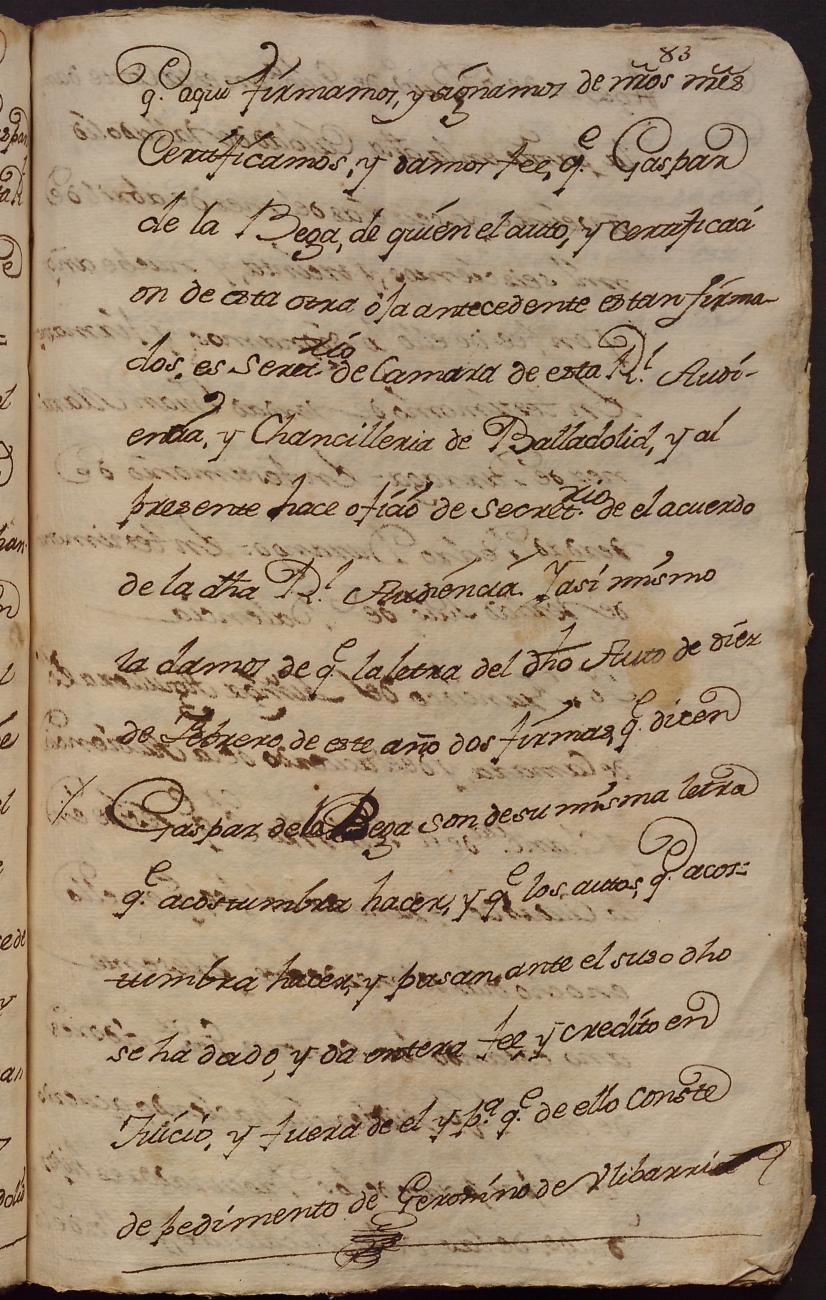 83
q.e aqui firmamos, y signamos de nr̃os nr̃es
Certificamos, y damos fee, q.e Gaspar
de la Bega, de quien el auto, y certificaci
on de esta otra ôja antecedente estan firma-
dos, es Secret.rio de Camara de esta R.l Audi-
encia, y Chancilleria de Balladolid, y al
presente hace oficio de Secret.rio de el acuerdo
de la dha R.l Audiencia. Y asi mismo
la damos de q.e la letra del dho Auto de diez
de Febrero, de este año dos firmas, q.e dicen
Gaspar de la Bega son de su misma letra
q.e acostumbra hacer, y q.e los autos, q.e acos=
tumbra hacer, y pasan, ante el suso dho
se ha dado, y da entera fee, y credito en
Juicio, y fuera de el y p.a q.e de ello conste
de pedimento de Geronimo de Vlibarria